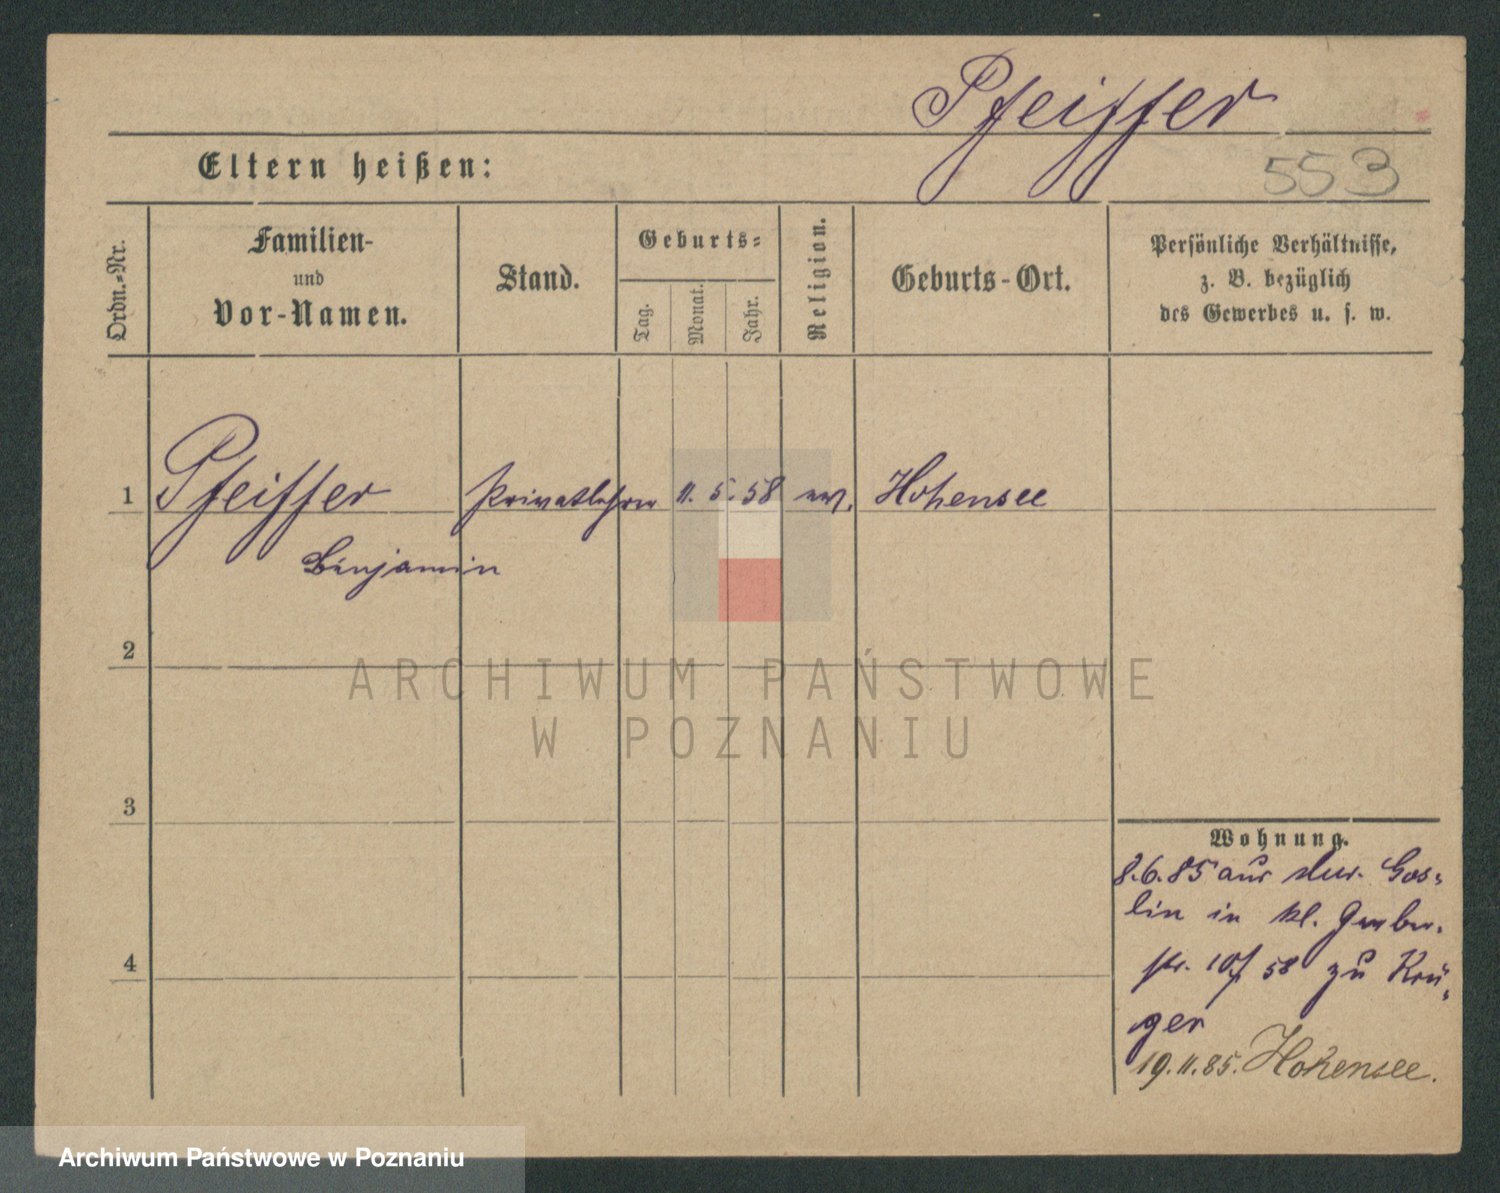 Pfeiffer
Eltern heißen:
553
Ordn.-Nr.
Familien-
und
Vor-Namen.
Stand.
Geburts-
Tag.
Monat.
Jahr.
Religion.
Geburts-Ort.
Persönliche Verhältnisse,
z. B. bezüglich
des Gewerbes u. s. w.
1 Pfeiffer Privatlehrer 11. 5. 58 ev. Hohensee
Benjamin
2
ARCHIWUM PAŃSTWOWE
W POZNANIU
3
4
Wohnung.
8.6.85 aus Mur. Gos-
lin in kl. Gerber-
str. 10/ 58 zu Krü-
ger
19.11.85. Hohensee.
Archiwum Państwowe w Poznaniu